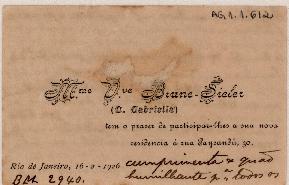 AG.1.1.612
Mme Vve Brune-Sieler
(D. Gabriella)
tem o prazer de participar-lhes a sua nova
residencia á rua Paysandú, 30.
Rio de Janeiro, 16-9-1906 cumprimenta
BM 2940. humilhante todos os